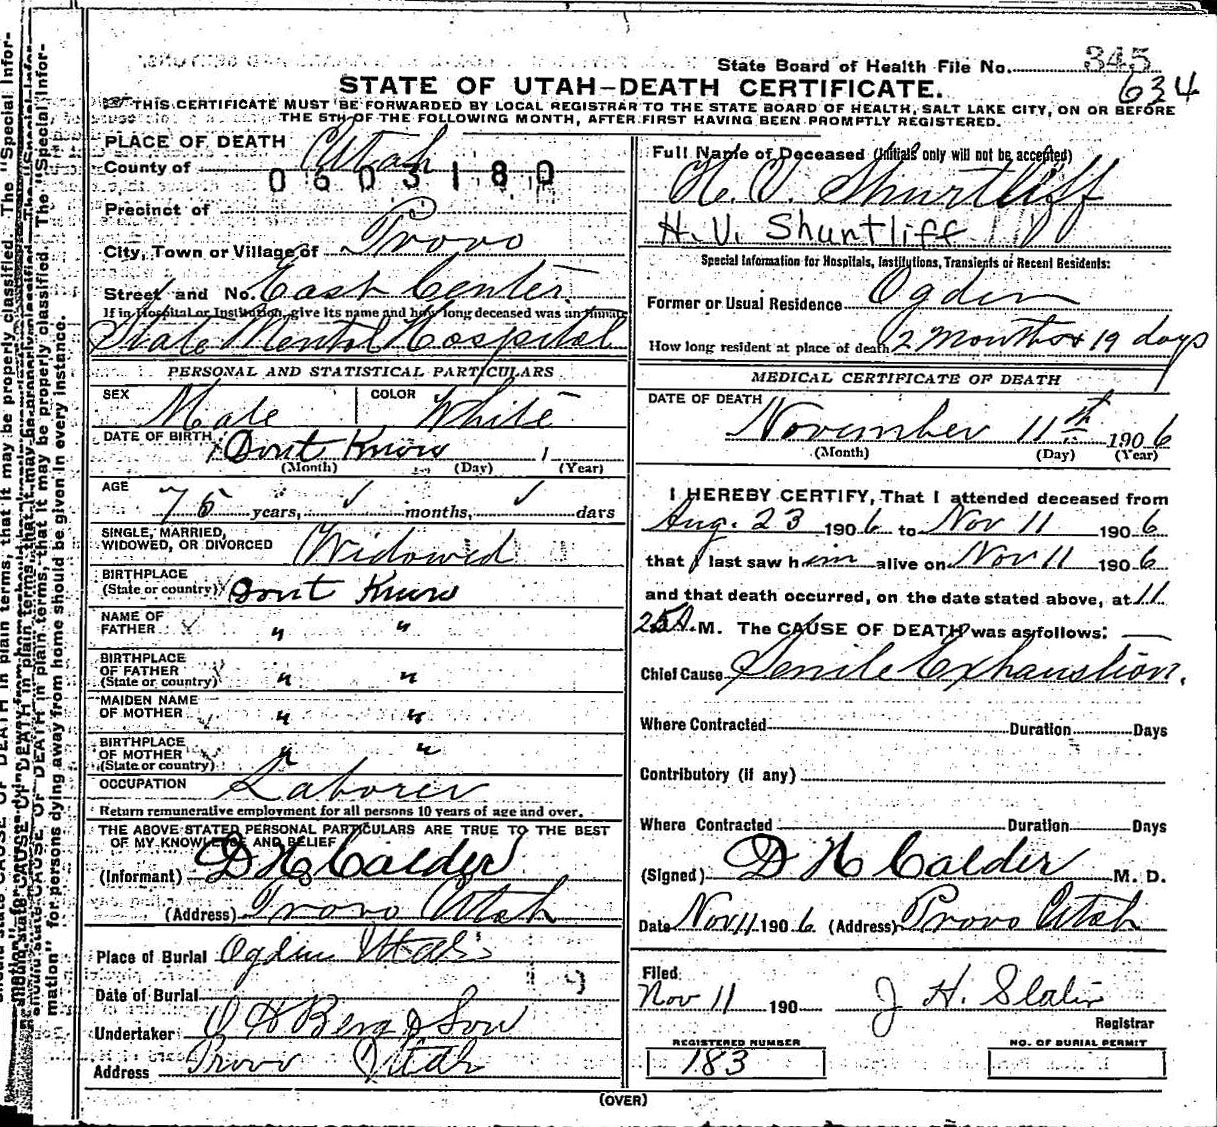 State Board of Health File No. 345
634
STATE OF UTAH-DEATH CERTIFICATE.
THIS CERTIFICATE MUST BE FORWARDED BY LOCAL REGISTRAR TO THE STATE BOARD OF HEALTH, SALT LAKE CITY, ON OR BEFORE
THE 5TH OF THE FOLLOWING MONTH, AFTER FIRST HAVING BEEN PROMPTLY REGISTERED.
PLACE OF DEATH
County of Utah
0603180
Precinct of
City, Town or Village of Provo
Street and No. East Center
If in Hospital or Institution, give its name and how long deceased was an inmate
State Mental Hospital
PERSONAL AND STATISTICAL PARTICULARS
SEX Male COLOR White
DATE OF BIRTH Dont Know
(Month) (Day) (Year)
AGE 75 years, ✓ months, ✓ days
SINGLE, MARRIED,
WIDOWED, OR DIVORCED Widowed
BIRTHPLACE
(State or country) Dont Know
NAME OF
FATHER " "
BIRTHPLACE
OF FATHER
(State or country) " "
MAIDEN NAME
OF MOTHER " "
BIRTHPLACE
OF MOTHER
(State or country) " "
OCCUPATION Laborer
Return remunerative employment for all persons 10 years of age and over.
THE ABOVE STATED PERSONAL PARTICULARS ARE TRUE TO THE BEST
OF MY KNOWLEDGE AND BELIEF
(Informant) D H Calder
(Address) Provo Utah
Place of Burial Ogden Utah
Date of Burial
Undertaker O H Berg & Son
Address Provo Utah
Full Name of Deceased (Initials only will not be accepted)
H. V. Shurtliff
H. V. Shuntliff
Special Information for Hospitals, Institutions, Transients or Recent Residents:
Former or Usual Residence Ogden
How long resident at place of death 2 Months & 19 days
MEDICAL CERTIFICATE OF DEATH
DATE OF DEATH
November 11th 1906
(Month) (Day) (Year)
I HEREBY CERTIFY, That I attended deceased from
Aug. 23 1906 to Nov 11 1906
that I last saw him alive on Nov 11 1906
and that death occurred, on the date stated above, at 11
25 A. M. The CAUSE OF DEATH was as follows:
Chief Cause Senile Exhaustion.
Where Contracted Duration Days
Contributory (if any)
Where Contracted Duration Days
(Signed) D H Calder M. D.
Date Nov 11 1906 (Address) Provo Utah
Filed
Nov 11 190 J H. Slater
Registrar
REGISTERED NUMBER NO. OF BURIAL PERMIT
183
(OVER)
DEATH in plain terms, that it may be properly classified. The "Special Infor-
mation" for persons dying away from home should be given in every instance.